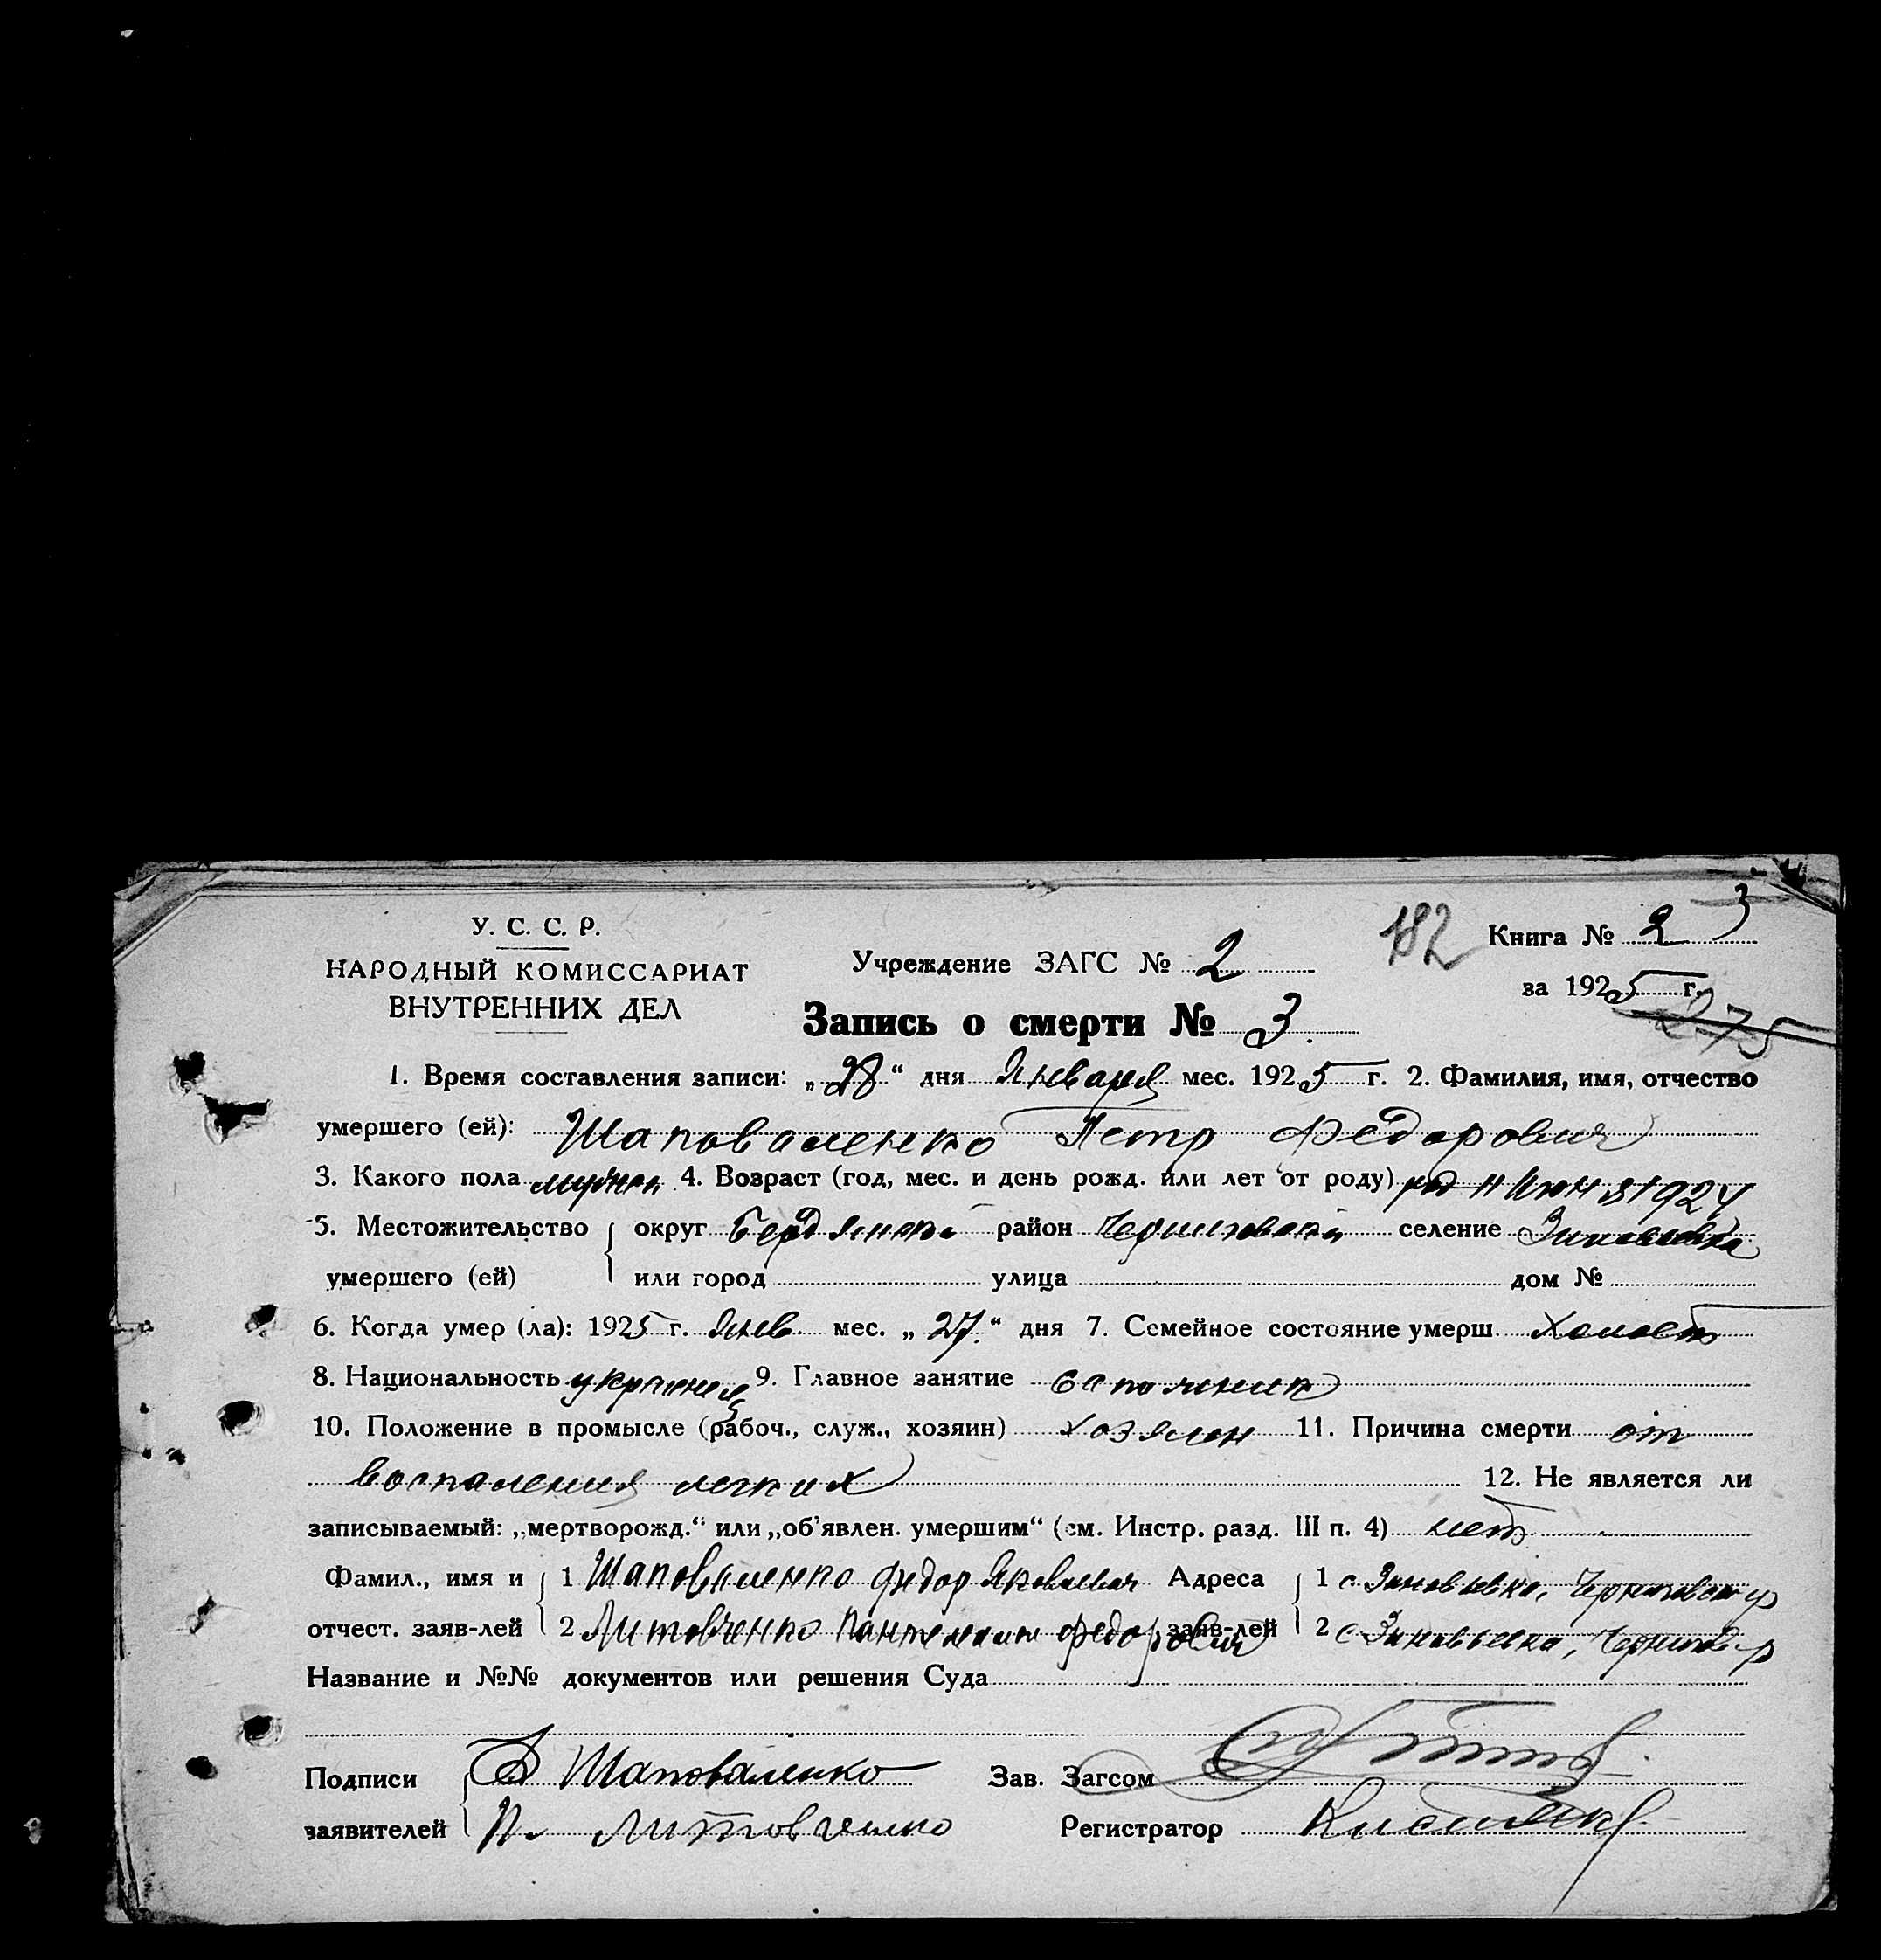 У. С. С. Р.
НАРОДНЫЙ КОМИССАРИАТ
ВНУТРЕННИХ ДЕЛ
Учреждение ЗАГС № 2
182
Книга № 2 3
за 1925 г.
275
Запись о смерти № 3.
1. Время составления записи: „28“ дня Января мес. 1925 г. 2. Фамилия, имя, отчество
умершего (ей): Шаповаленко Петр Федорович
3. Какого пола мужск 4. Возраст (год, мес. и день рожд. или лет от роду) 1924
5. Местожительство округ Бердянский район Черниговский селение Зиновьевка
умершего (ей) или город улица дом №
6. Когда умер (ла): 1925 г. Янв мес. „27.“ дня 7. Семейное состояние умерш. Холост
8. Национальность украинец 9. Главное занятие
10. Положение в промысле (рабоч., служ., хозяин) хозяин 11. Причина смерти от
воспаления легких 12. Не является ли
записываемый: „мертворожд.“ или „об'явлен. умершим“ (см. Инстр. разд. III п. 4) нет
Фамил., имя и 1 Шаповаленко Федор Яковлевич Адреса 1 с Зиновьевка, Черниговск р
отчест. заяв-лей 2 Литовченко Пантелеймон Федорович заяв-лей 2 с Зиновьевка, Чернигов р
Название и №№ документов или решения Суда
Подписи Ф Шаповаленко Зав. Загсом
заявителей П. Литовченко Регистратор